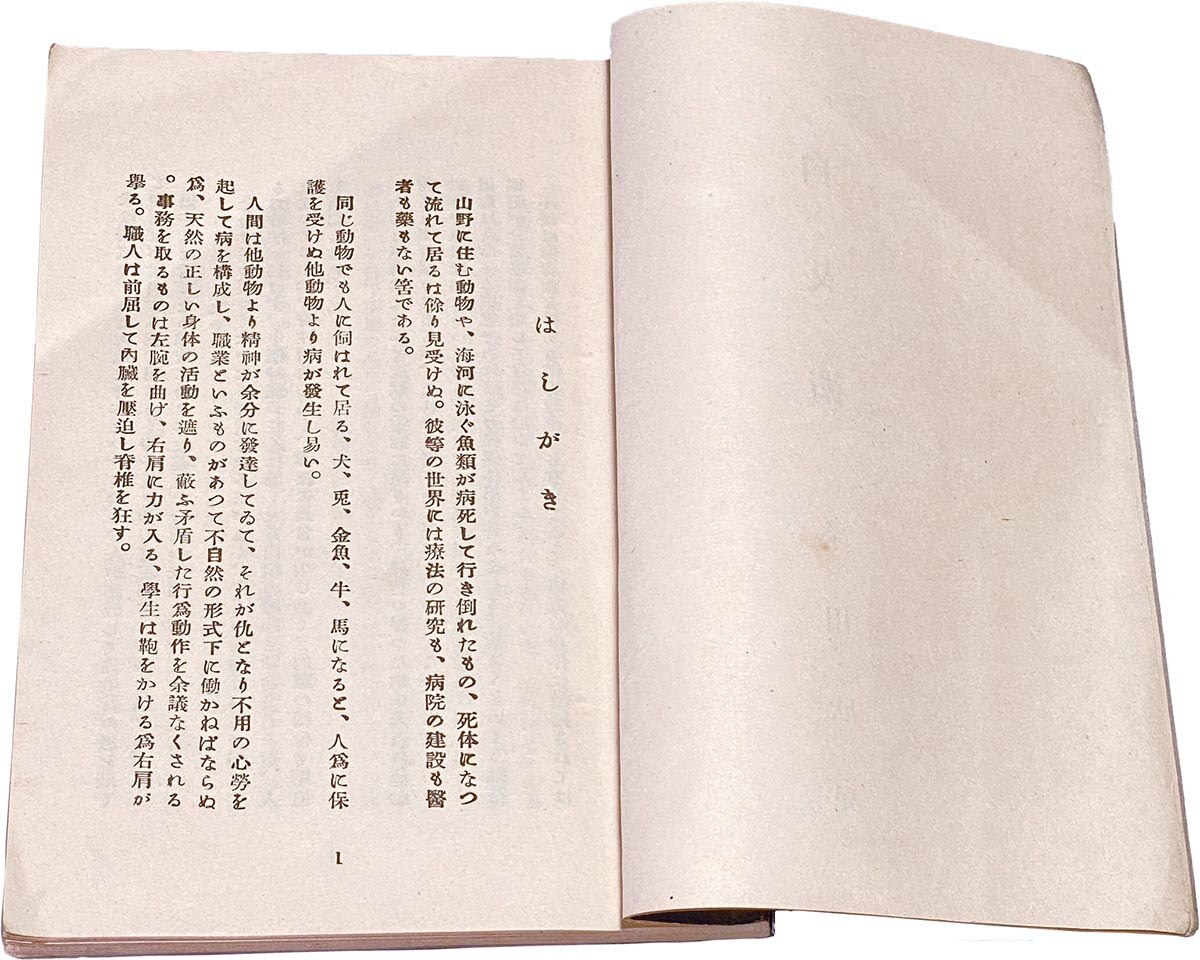 はしがき
山野に住む動物や、海河に泳ぐ魚類が病死して行き倒れたもの、死体になつ
て流れて居るは餘り見受けぬ。彼等の世界には療法の研究も、病院の建設も醫
者も藥もない筈である。
同じ動物でも人に飼はれて居る、犬、兎、金魚、牛、馬になると、人爲に保
護を受けぬ他動物より病が發生し易い。
人間は他動物より精神が余分に發達してゐて、それが仇となり不用の心勞を
起して病を構成し、職業といふものがあつて不自然の形式下に働かねばならぬ
爲、天然の正しい身体の活動を遮り、蔽ふ矛盾した行爲動作を余議なくされる
。事務を取るものは左腕を曲げ、右肩に力が入る、學生は鞄をかける爲右肩が
擧る。職人は前屈して內臟を壓迫し脊椎を狂す。
1